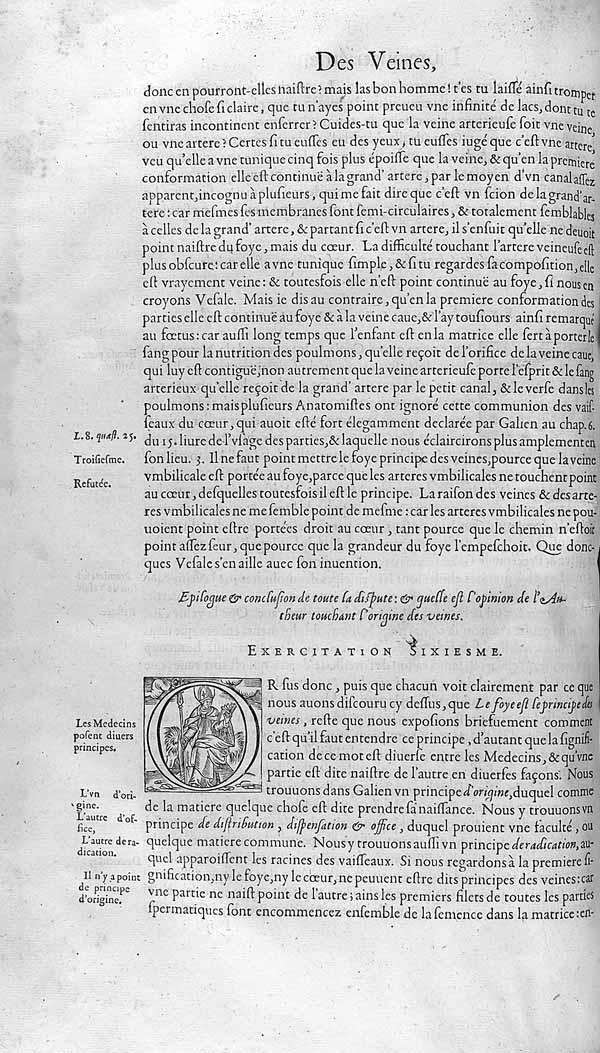 Des Veines,
donc en pourront-elles naiſtre? mais las bon homme! t'es tu laiſſé ainſi tromper
en vne choſe ſi claire, que tu n'ayes point preueu vne infinité de lacs, dont tu te
ſentiras incontinent enferrer? Cuides-tu que la veine arterieuſe ſoit vne veine,
ou vne artere? Certes ſi tu euſſes eu des yeux, tu euſſes iugé que c'eſt vne artere,
veu qu'elle a vne tunique cinq fois plus époiſſe que la veine, & qu'en la premiere
conformation elle eſt continuë à la grand' artere, par le moyen d'vn canal aſſez
apparent, incognu à pluſieurs, qui me fait dire que c'eſt vn ſcion de la grand' ar-
tere: car meſmes ſes membranes ſont ſemi-circulaires, & totalement ſemblables
à celles de la grand' artere, & partant ſi c'eſt vn artere, il s'enſuit qu'elle ne deuoit
point naiſtre du foye, mais du cœur. La difficulté touchant l'artere veineuſe eſt
plus obſcure: car elle a vne tunique ſimple, & ſi tu regardes ſa compoſition, elle
eſt vrayement veine: & toutesfois elle n'eſt point continuë au foye, ſi nous en
croyons Veſale. Mais ie dis au contraire, qu'en la premiere conformation des
parties elle eſt continuë au foye & à la veine caue, & l'ay touſiours ainſi remarqué
au fœtus: car auſſi long temps que l'enfant eſt en la matrice elle ſert à porter le
ſang pour la nutrition des poulmons, qu'elle reçoit de l'orifice de la veine caue,
qui luy eſt contiguë, non autrement que la veine arterieuſe porte l'eſprit & le ſang
arterieux qu'elle reçoit de la grand' artere par le petit canal, & le verſe dans les
poulmons: mais pluſieurs Anatomiſtes ont ignoré cette communion des vaiſ-
ſeaux du cœur, qui auoit eſté fort élegamment declarée par Galien au chap. 6.
L. 8. quæſt. 25.
du 15. liure de l'vſage des parties, & laquelle nous éclaircirons plus amplement en
Troiſieſme.
ſon lieu. 3. Il ne faut point mettre le foye principe des veines, pource que la veine
Refutée.
vmbilicale eſt portée au foye, parce que les arteres vmbilicales ne touchent point
au cœur, deſquelles toutesfois il eſt le principe. La raiſon des veines & des arte-
res vmbilicales ne me ſemble point de meſme: car les arteres vmbilicales ne pou-
uoient point eſtre portées droit au cœur, tant pource que le chemin n'eſtoit
point aſſez ſeur, que pource que la grandeur du foye l'empeſchoit. Que donc-
ques Veſale s'en aille auec ſon inuention.
Epilogue & concluſion de toute la diſpute: & quelle eſt l'opinion de l'Au-
theur touchant l'origine des veines.
EXERCITATION SIXIESME.
OR ſus donc, puis que chacun voit clairement par ce que
nous auons diſcouru cy deſſus, que Le foye eſt le principe des
Les Medecins
poſent diuers
principes.
veines, reſte que nous expoſions briefuement comment
c'eſt qu'il faut entendre ce principe, d'autant que la ſignifi-
cation de ce mot eſt diuerſe entre les Medecins, & qu'vne
partie eſt dite naiſtre de l'autre en diuerſes façons. Nous
L'vn d'ori-
gine.
trouuons dans Galien vn principe d'origine, duquel comme
de la matiere quelque choſe eſt dite prendre ſa naiſſance. Nous y trouuons vn
L'autre d'of-
fice,
principe de diſtribution, diſpenſation & office, duquel prouient vne faculté, ou
L'autre de ra-
dication.
quelque matiere commune. Nous y trouuons auſſi vn principe de radication, au-
quel apparoiſſent les racines des vaiſſeaux. Si nous regardons à la premiere ſi-
Il n'y a point
de principe
d'origine.
gnification, ny le foye, ny le cœur, ne peuuent eſtre dits principes des veines: car
vne partie ne naiſt point de l'autre; ains les premiers filets de toutes les parties
ſpermatiques ſont encommencez enſemble de la ſemence dans la matrice: en-